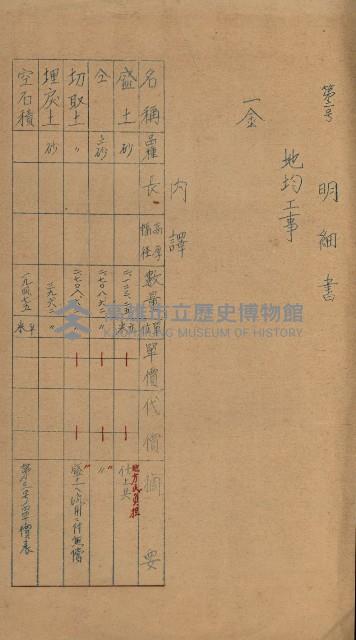 第二号
明細書
地均工事
一金
内譯
名稱 品種 長 高厚 幅径 數量 單位 單價 代價 摘要
盛土 砂 立米 地方民負担 仕上共
仝 〃
切取土 〃 二七〇八、二 〃 盛土ヘ流用ニ付無償
埋戻土 砂 〃
空石積 一九四、七五 平米 第三号單價表
高雄市立歷史博物館
KAOHSIUNG MUSEUM OF HISTORY